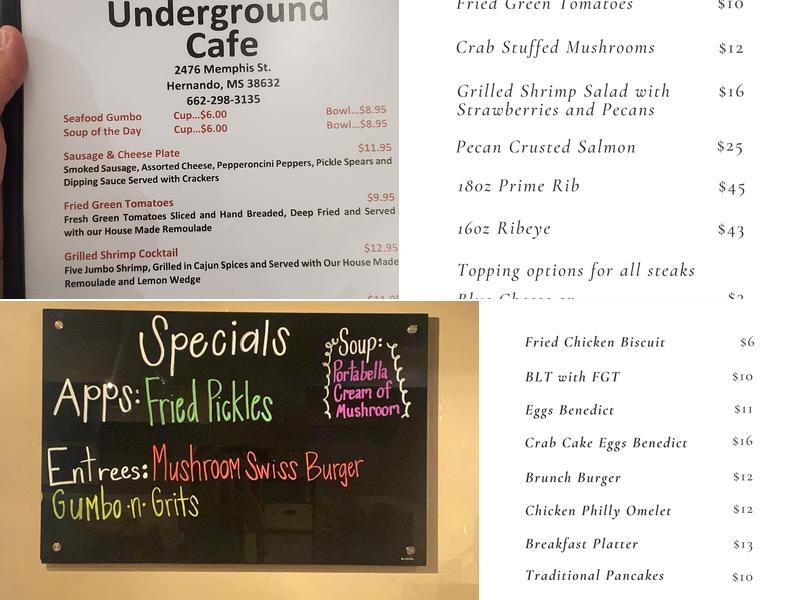 Underground
Cafe
2476 Memphis St.
Hernando, MS 38632
662-298-3135
Seafood Gumbo Cup...$6.00 Bowl...$8.95
Soup of the Day Cup...$6.00 Bowl...$8.95
Sausage & Cheese Plate $11.95
Smoked Sausage, Assorted Cheese, Pepperoncini Peppers, Pickle Spears and
Dipping Sauce Served with Crackers
Fried Green Tomatoes $9.95
Fresh Green Tomatoes Sliced and Hand Breaded, Deep Fried and Served
with our House Made Remoulade
Grilled Shrimp Cocktail $12.95
Five Jumbo Shrimp, Grilled in Cajun Spices and Served with Our House Made
Remoulade and Lemon Wedge
Fried Green Tomatoes $10
Crab Stuffed Mushrooms $12
Grilled Shrimp Salad with $16
Strawberries and Pecans
Pecan Crusted Salmon $25
18oz Prime Rib $45
16oz Ribeye $43
Topping options for all steaks
Specials
Apps: Fried Pickles
Soup:
Portabella
Cream of
Mushroom
Entrees: Mushroom Swiss Burger
Gumbo·n·Grits
Fried Chicken Biscuit $6
BLT with FGT $10
Eggs Benedict $11
Crab Cake Eggs Benedict $16
Brunch Burger $12
Chicken Philly Omelet $12
Breakfast Platter $13
Traditional Pancakes $10